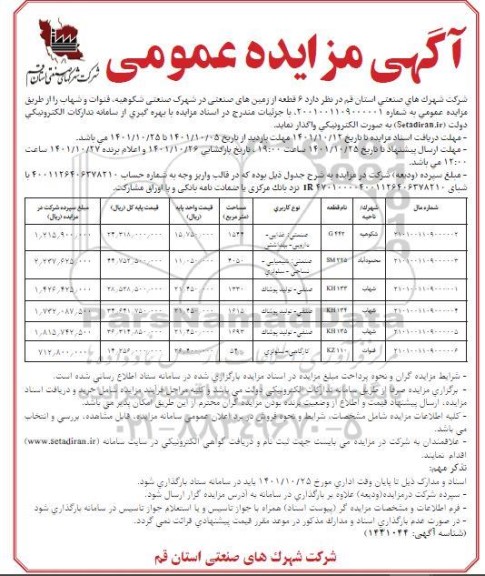 آگهی مزایده عمومی
شرکت شهرکهای صنعتی استان قم
شرکت شهرك های صنعتی استان قم در نظر دارد ۶ قطعه از زمین های صنعتی در شهرک صنعتی شکوهیه، قنوات و شهاب را از طریق
مزایده عمومی به شماره ۲۰۰۱۰۰۱۱۰۹۰۰۰۰۰۱ با جزئیات مندرج در اسناد مزایده با بهره گیری از سامانه تدارکات الکترونیکی
دولت (Setadiran.ir) به صورت الکترونیکی واگذار نماید.
- مهلت دریافت اسناد مزایده تا تاریخ ۱۴۰۱/۱۰/۱۲ مهلت بازدید از تاریخ ۱۴۰۱/۱۰/۰۵ تا ۱۴۰۱/۱۰/۲۵ می باشد.
- مهلت ارسال پیشنهاد تا تاریخ ۱۴۰۱/۱۰/۲۵ ساعت ۱۹:۰۰ ، تاریخ بازگشایی ۱۴۰۱/۱۰/۲۶ و اعلام برنده ۱۴۰۱/۱۰/۲۷ ساعت
۱۲:۰۰ می باشد.
- مبلغ سپرده (ودیعه) شرکت در مزایده به شرح جدول ذیل بوده که در قالب واریز وجه به شماره حساب ۴۰۰۱۱۲۶۴۰۶۳۷۸۲۱۰ با
شبای IR ۴۷۰۱۰۰۰۰۴۰۰۱۱۲۶۴۰۶۳۷۸۲۱۰ نزد بانك مرکزی یا ضمانت نامه بانکی و یا اوراق مشارکت.
شماره مال شهرك/ناحیه نام قطعه نوع کاربری مساحت (متر مربع) قیمت واحد پایه (ریال) قیمت پایه کل (ریال) مبلغ سپرده شرکت در مزایده (ریال)
شکوهیه G ۴۴۲ صنعتی- غذایی- دارویی- بهداشتی ۱۵۴۴ ۱۵,۷۵۰,۰۰۰ ۲۴,۳۱۸,۰۰۰,۰۰۰ ۱,۲۱۵,۹۰۰,۰۰۰
محمودآباد ۴۰۵۰ ۱۱,۰۵۰,۰۰۰ ۴۴,۷۵۲,۵۰۰,۰۰۰ ۲,۲۳۷,۶۲۵,۰۰۰
شهاب KH ۱۳۳ صنعتی- تولید پوشاك ۱۳۳۰
شهاب KH ۱۳۴ صنعتی- تولید پوشاك ۱۶۱۵
شهاب KH ۱۳۵ صنعتی- تولید پوشاك ۱۶۹۳
قنوات KZ ۱۱۱ ۵۴۰ ۷۱۲,۸۰۰,۰۰۰
ParsNamadData
۰۲۱-۸۸۳۴۹۶۷۰-۵
- شرایط مزایده گران و نحوه پرداخت مبلغ مزایده در اسناد مزایده بارگزاری شده در سامانه ستاد اطلاع رسانی شده است.
- برگزاری مزایده صرفا از طریق سامانه تدارکات الکترونیکی دولت می باشد و کلیه مراحل فرآیند مزایده شامل خرید و دریافت اسناد
مزایده، ارسال پیشنهاد قیمت و اطلاع از وضعیت برنده بودن مزایده گران محترم از این طریق امکان پذیر می باشد.
- کلیه اطلاعات مزایده شامل مشخصات، شرایط و نحوه فروش در برد اعلان عمومی سامانه مزایده، قابل مشاهده، بررسی و انتخاب
می باشد.
- علاقمندان به شرکت در مزایده می بایست جهت ثبت نام و دریافت گواهی الکترونیکی در سایت سامانه (www.setadiran.ir)
اقدام نمایند.
تذکر مهم:
اسناد و مدارك ذیل تا پایان وقت اداری مورخ ۱۴۰۱/۱۰/۲۵ باید در سامانه ستاد بارگذاری شود.
- سپرده شرکت درمزایده(ودیعه) علاوه بر بارگذاری در سامانه به آدرس مزایده گزار ارسال شود.
- فرم اطلاعات و مشخصات مزایده گر (پیوست اسناد) همراه با جواز تاسیس و یا استعلام جواز تاسیس در سامانه بارگذاری شود
- در صورت عدم بارگذاری اسناد و مدارك مذکور در موعد مقرر قیمت پیشنهادی قرائت نمی گردد.
(شناسه آگهی: ۱۴۳۱۰۴۴)
شرکت شهرك های صنعتی استان قم